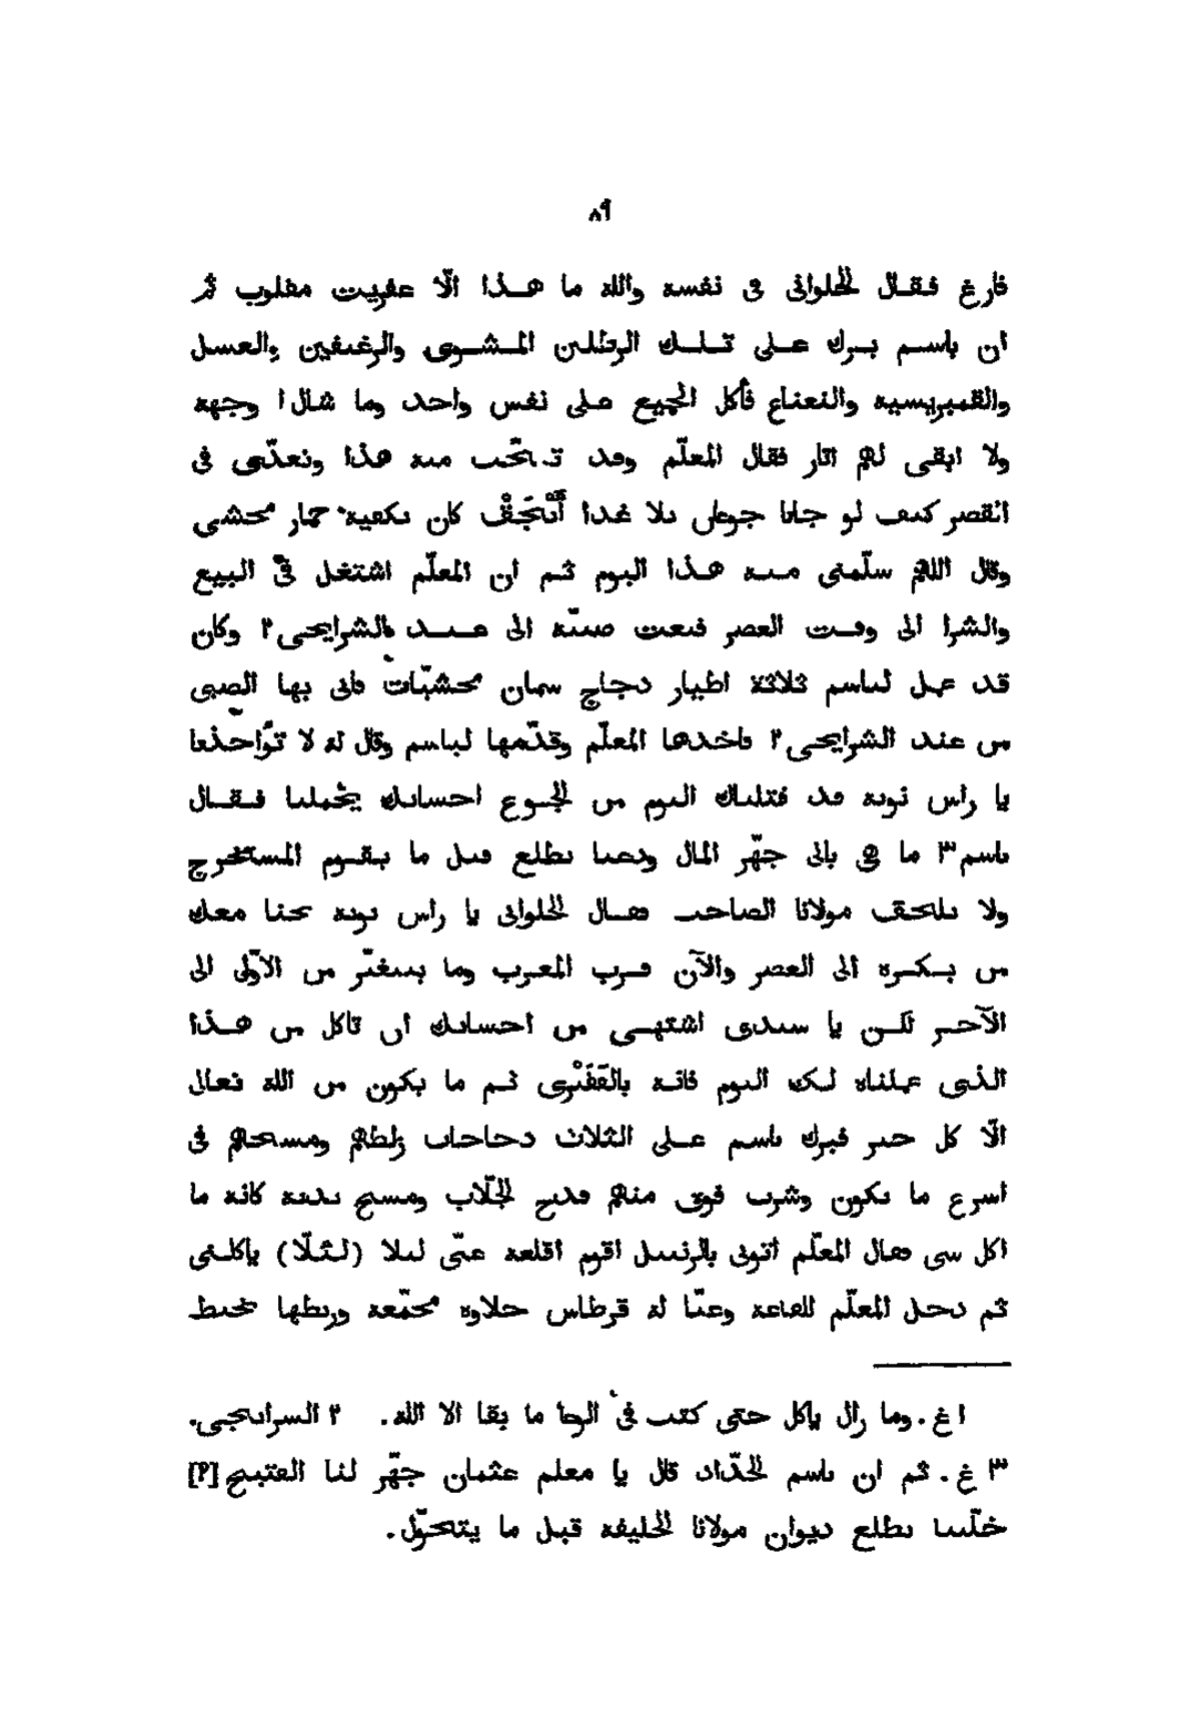 ٨٩
فارغ فقال الحلوانى فى نفسه والله ما هذا الّا عفريت مقلوب ثم
ان باسم برك على تلك الرطلين المشوى والرغيفين والعسل
والقنبريسية والنعناع فأكل الجميع على نفس واحد وما شال١ وجهه
ولا ابقى لهم اثار فقال المعلّم وقد تعجّب منه هذا ونعدّى فى
القصر كيف لو جانا جوعان بلا غدا كان تكفيه حمار محشى
وقال اللهم سلّمنى منه هذا اليوم ثم ان المعلّم اشتغل فى البيع
والشرا الى وقت العصر فبعت صبيّه الى عند الشرايحى٢ وكان
قد عمل لباسم ثلاثة اطيار دجاج سمان محشيّات فاتى بها الصبى
من عند الشرايحى٢ فاخدها المعلّم وقدّمها لباسم وقال له لا تواخذنا
يا راس نوبه قد قتلناك اليوم من الجوع احسانك يحملنا فقال
باسم٣ ما هى باتى جهّز المال ودعنا نطلع قبل ما يقوم المستخرج
ولا نلحق مولانا الصاحب فقال الحلوانى يا راس نوبه نحنا معك
من بكره الى العصر والآن قرب المغرب وما يتغيّر من الاوّل الى
الآخر لكن يا سيدى اشتهى من احسانك ان تاكل من هذا
الذى عملناه لك اليوم فانه ثم ما يكون من الله تعالى
الّا كل خير فبرك باسم على الثلاث دجاجات زلطهم ومسحهم فى
اسرع ما يكون وشرب فوق منهم قدح الجلّاب ومسح يديه كانه ما
اكل شى فقال المعلّم اتونى بالزنبيل اقوم اقلعه عنّى ليلا (لئلّا) ياكلنى
ثم دخل المعلّم للقاعه وعبّا له قرطاس حلاوه مجمّعه وربطها بخيط
١ غ. وما زال ياكل حتى كتب فى الرحا ما بقا الا الله. ٢ السرايحى.
٣ غ. ثم ان باسم الحدّاد قال يا معلم عثمان جهّز لنا [?]
خلّينا نطلع ديوان مولانا الخليفه قبل ما يتحوّل.